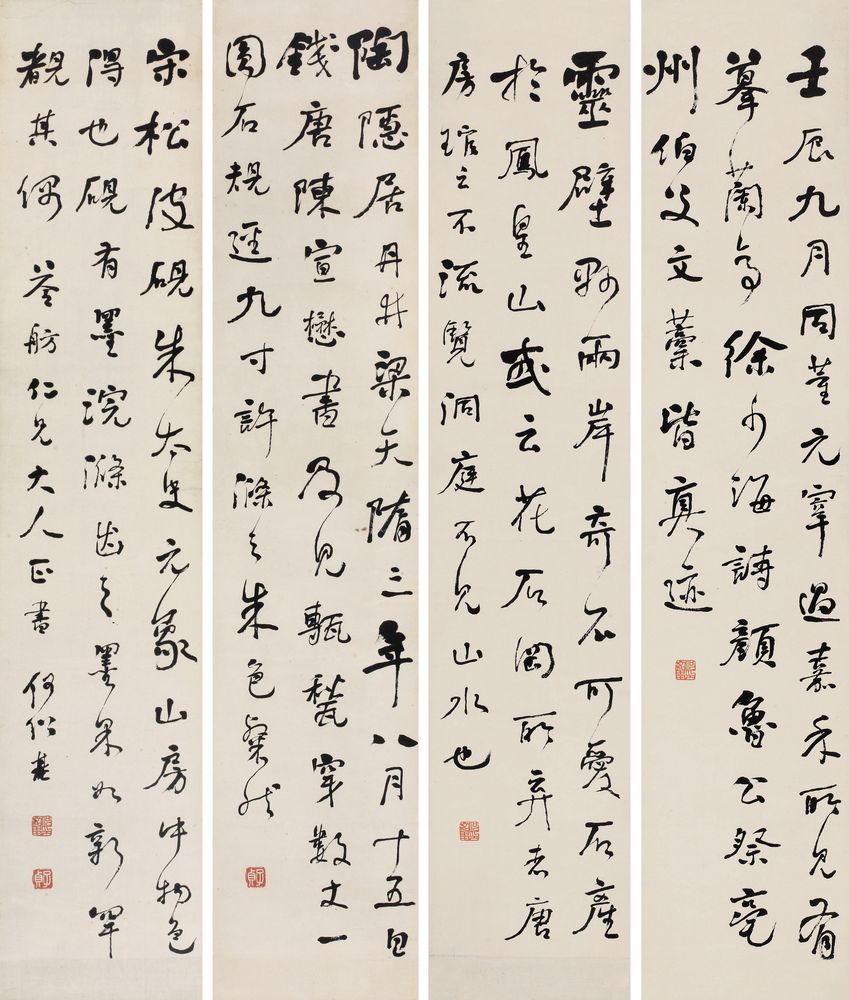 壬辰九月同董元宰過嘉禾所見有
摹蘭亭徐少海詩顏魯公祭豪
州伯父文藁皆真迹
靈壁縣兩岸奇石可愛石產
於鳳皇山或云花石岡所弃者唐
房琯之不流覽洞庭不見山水也
陶隱居丹井梁天隋三年八月十五日
錢唐陳宣懋書及見甎甃穿數丈一
圓石規逕九寸許滌之朱色粲然
宋松皮硯朱太史元象山房中物色
得也硯有墨浣滌出之墨果如新罕
覩其偶 苍舫仁兄大人正書 何紹基